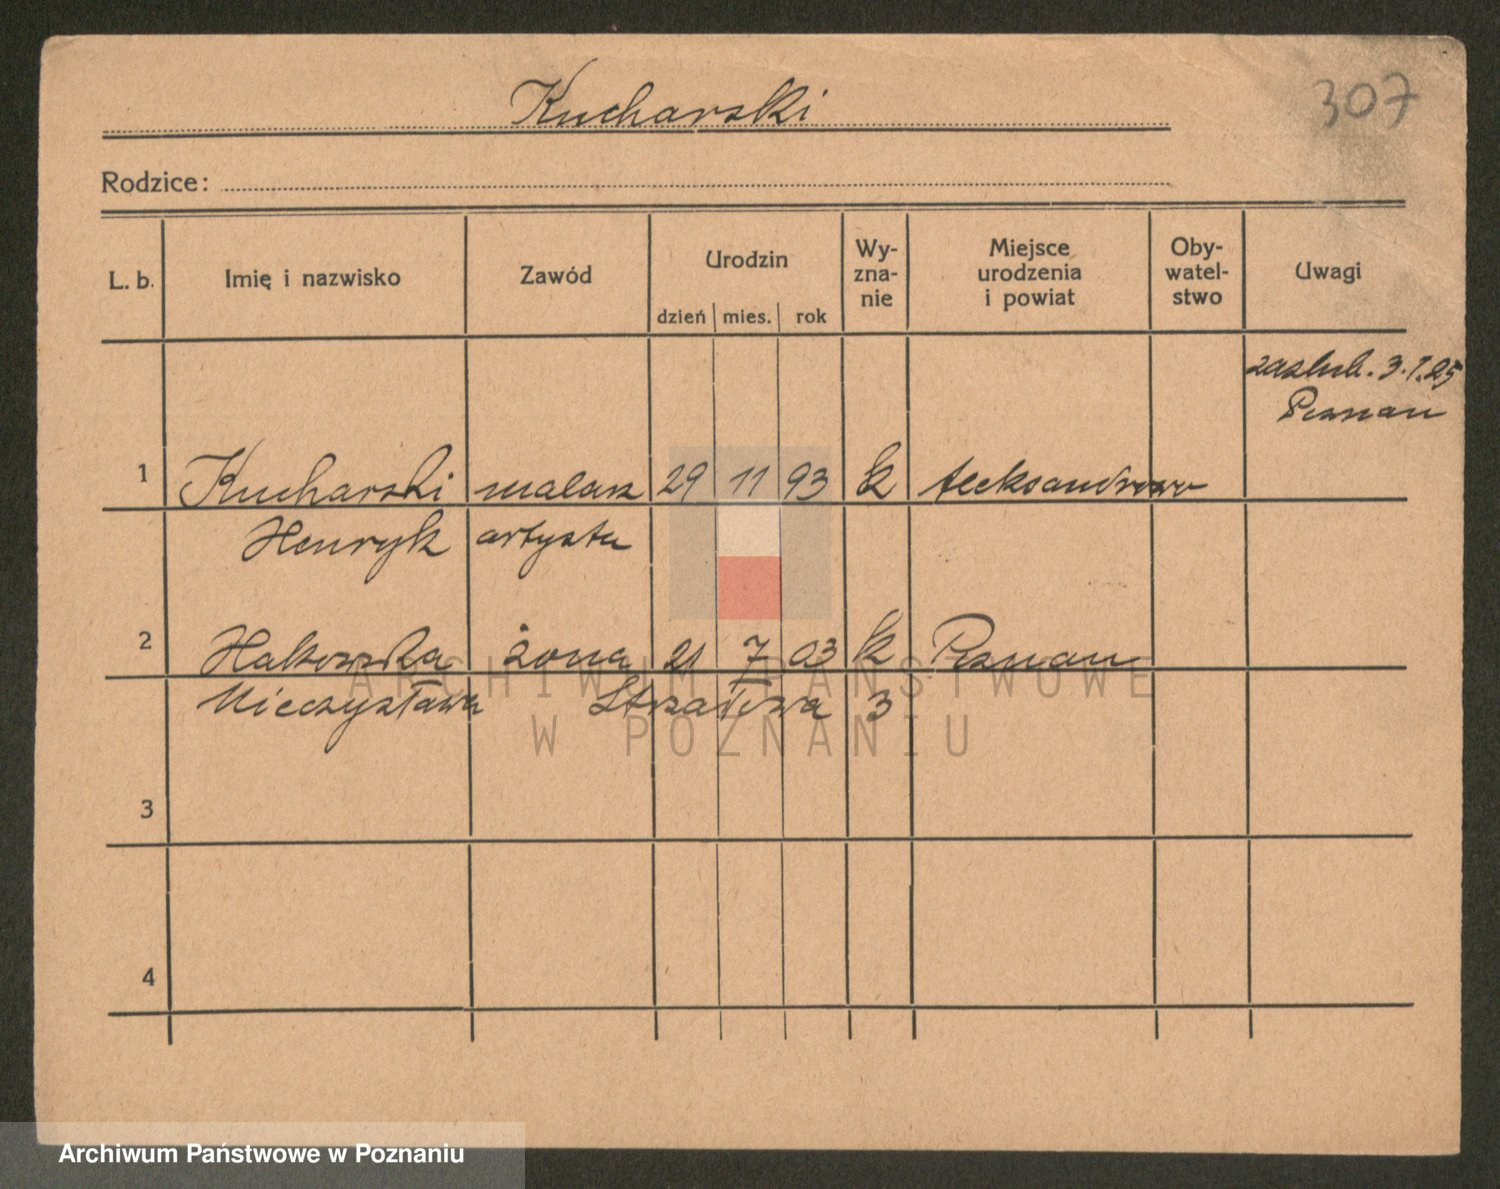 307
Kucharski
Rodzice:
L. b. Imię i nazwisko Zawód Urodzin dzień mies. rok Wy-zna-nie Miejsce urodzenia i powiat Oby-watel-stwo Uwagi
zaślub. 3.1.25
Poznan
1 Kucharski malarz 29 11 93 k Aleksandrowo
Henryk artysta
2 żona 21 7 03 k Poznan
Mieczysława Strzałowa 3
3
4
ARCHIWUM PAŃSTWOWE
W POZNANIU
Archiwum Państwowe w Poznaniu